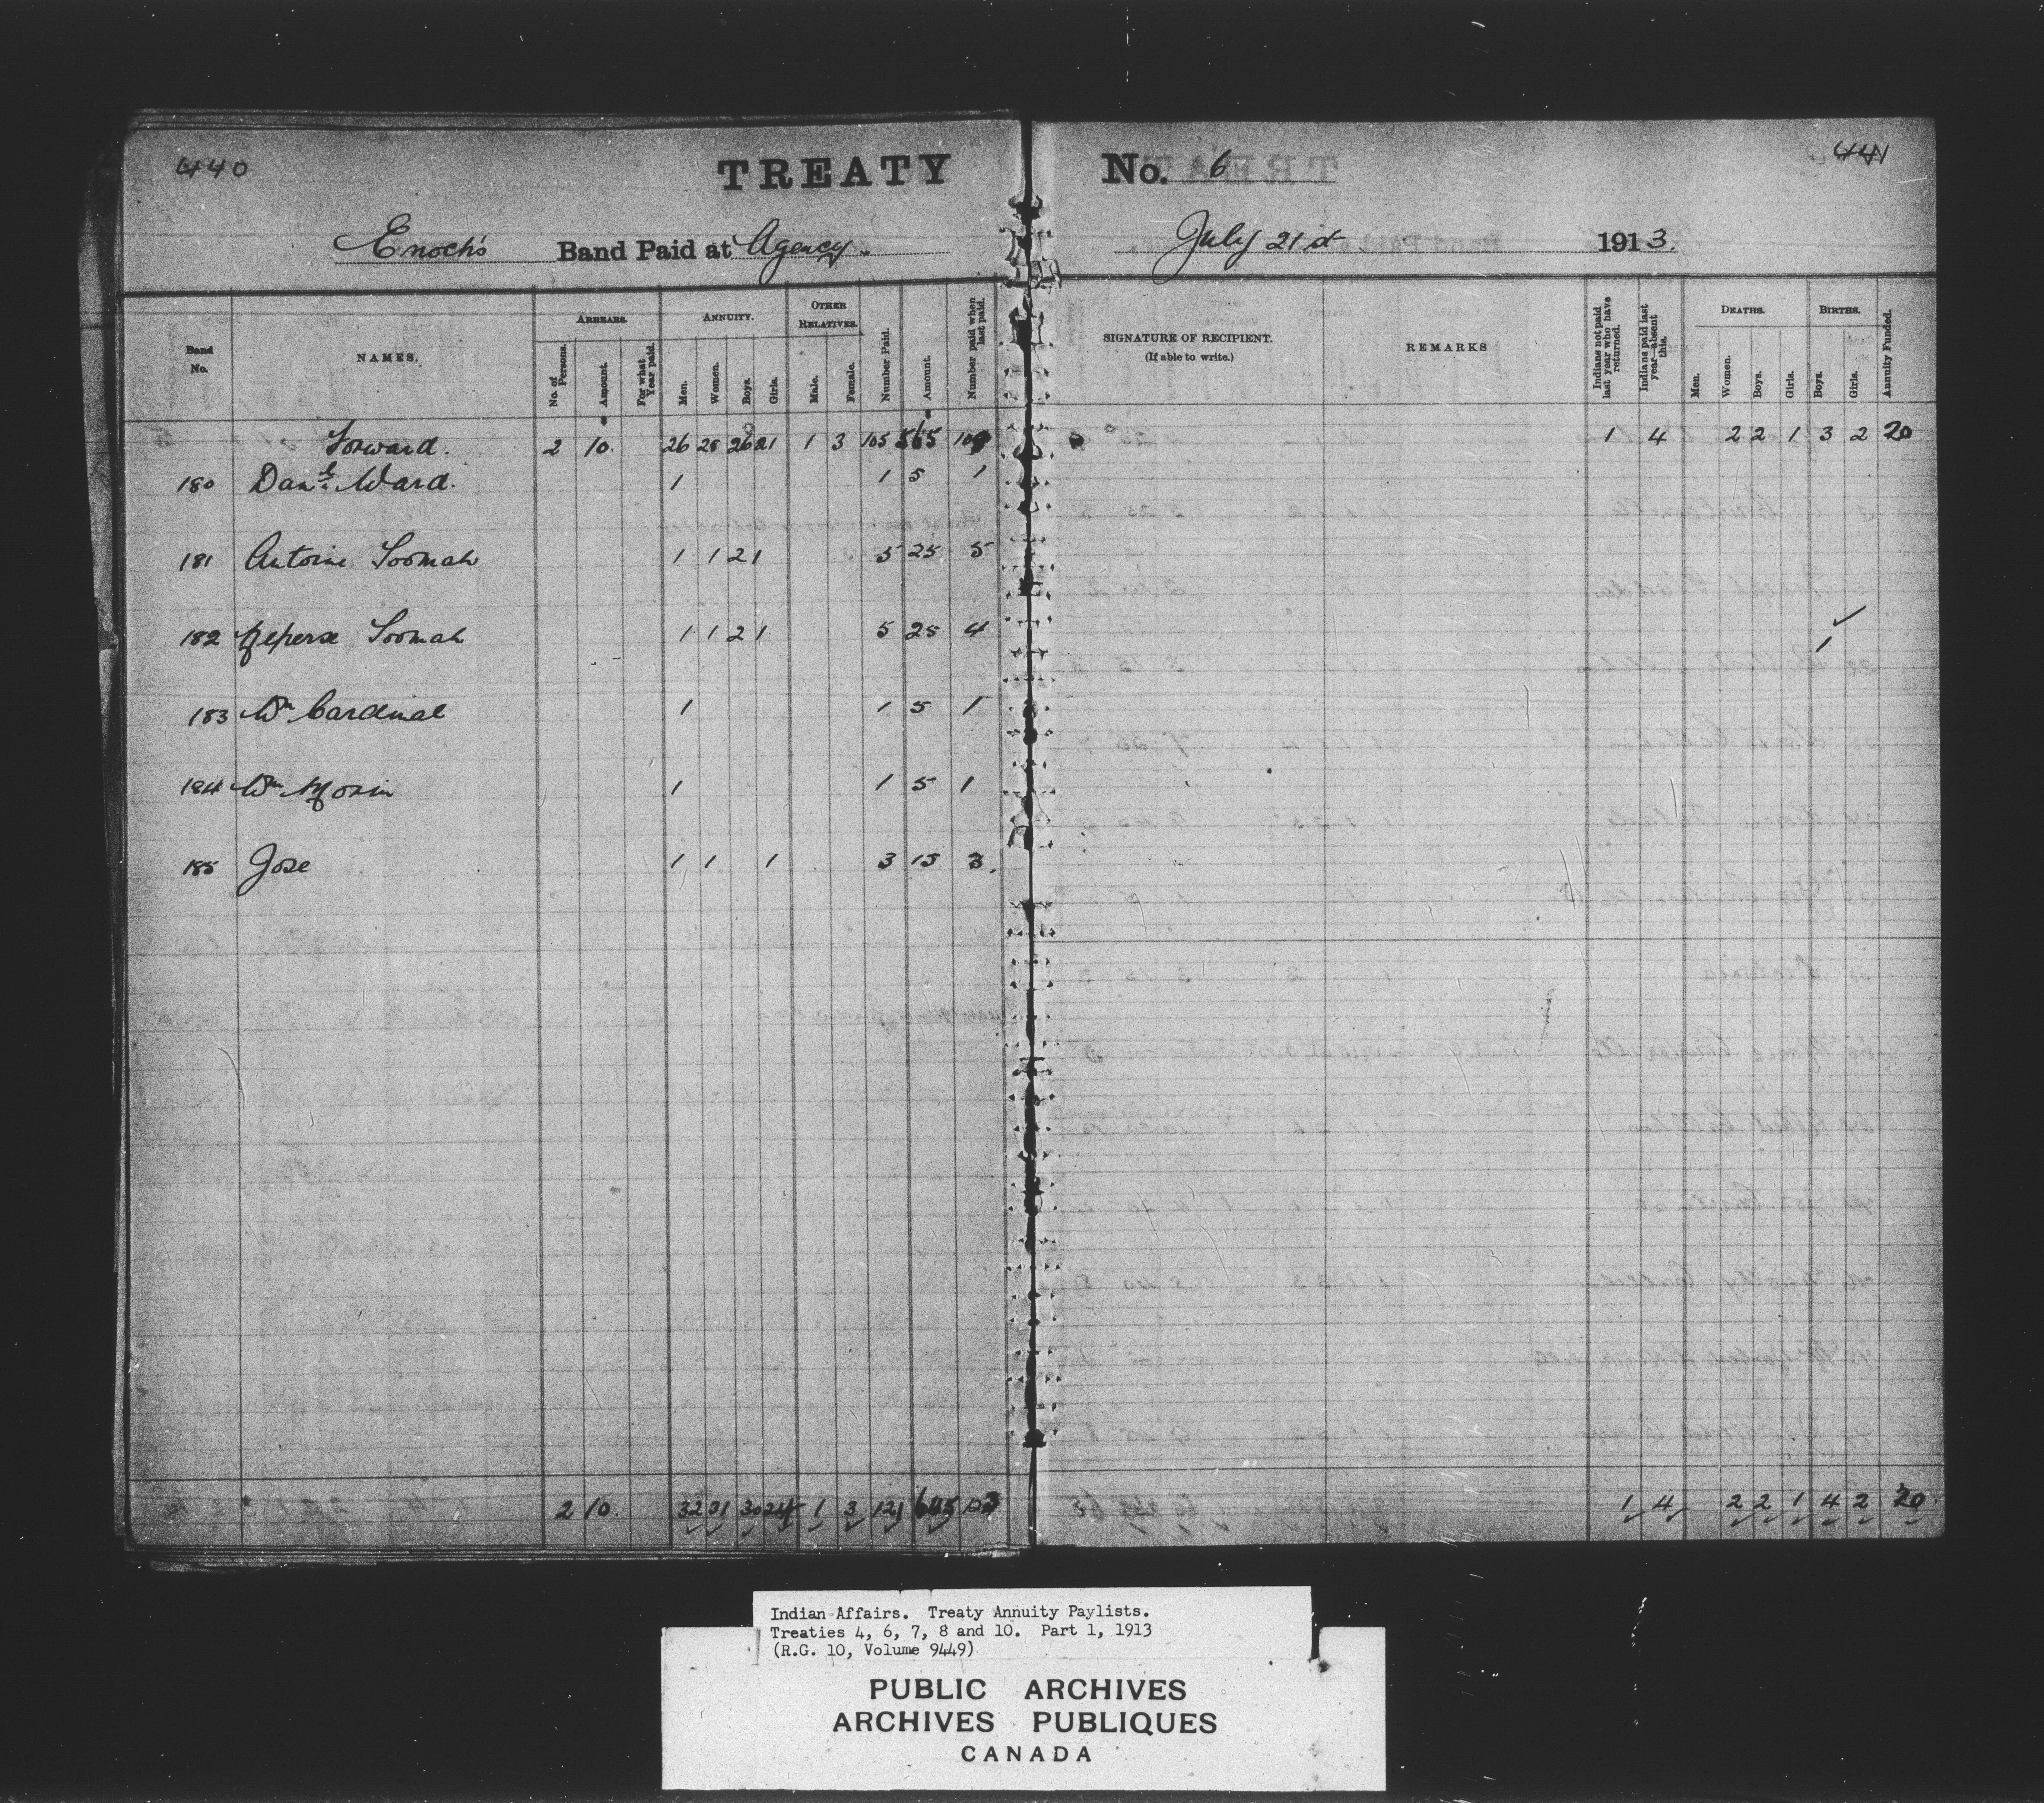 440 TREATY No. 6 441
Enoch's Band Paid at Agency. July 21st 1913.
Band No. NAMES. ARREARS. No. of Persons. Amount. For what Year paid. ANNUITY. Men. Women. Boys. Girls. OTHER RELATIVES. Male. Female. Number Paid. Amount. Number paid when last paid. SIGNATURE OF RECIPIENT. (If able to write.) REMARKS Indians not paid last year who have returned. Indians paid last year—absent this. DEATHS. Men. Women. Boys. Girls. BIRTHS. Boys. Girls. Annuity Funded.
Forward. 2 10. 26 28 26 21 1 3 105 565 1 4 2 2 1 3 2 20
180 Danl. Ward. 1 1 5 1
181 Antoine Toomah 1 1 2 1 5 25 5
182 Toomah 1 1 2 1 5 25 4 1
183 Wm Cardinal 1 1 5 1
184 Wm Morin 1 1 5 1
185 Jose 1 1 1 3 15 3.
2 10. 32 31 30 24 1 3 121 645 123 1 4 2 2 1 4 2 20
Indian Affairs. Treaty Annuity Paylists.
Treaties 4, 6, 7, 8 and 10. Part 1, 1913
(R.G. 10, Volume 9449)
PUBLIC ARCHIVES
ARCHIVES PUBLIQUES
CANADA